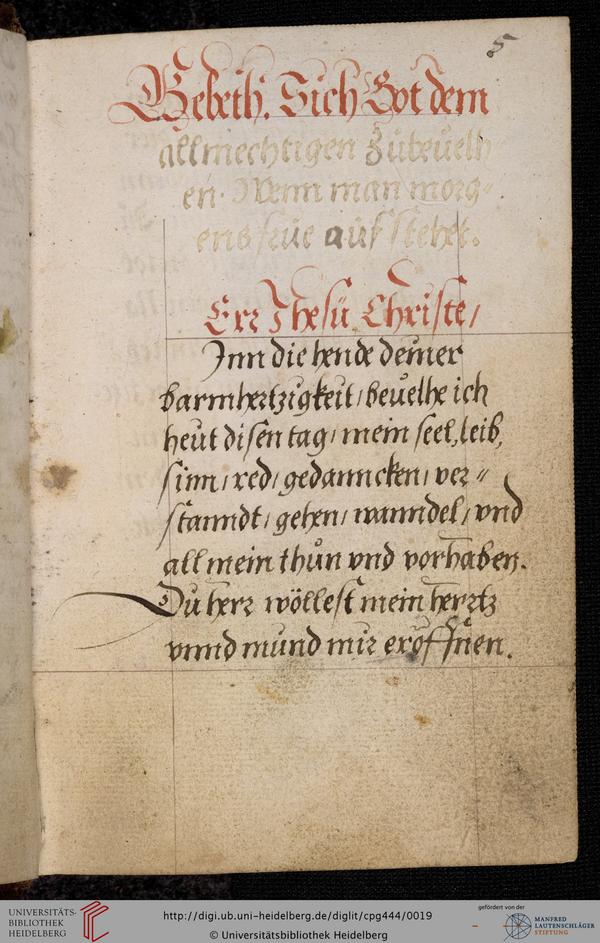 5
Gebeth. Sich Got dem
allmechtigen Zůbeuelh
en. Wenn man morg-
ens frůe aůf stehet.
Err Jhesů Christe/
Jnn die hende deiner
barmhertzigkeit/ beuelhe ich
heůt disen tag/ mein seel, leib,
sinn/ red/ gedanncken/ ver=
stanndt/ gehen/ wanndel/ vnd
all mein thůn vnd vorhaben.
Du herr wöllest mein hertz
vnnd mund mir eröffnen.
UNIVERSITÄTS-
BIBLIOTHEK
HEIDELBERG
http://digi.ub.uni-heidelberg.de/diglit/cpg444/0019
© Universitätsbibliothek Heidelberg
gefördert von der
MANFRED
LAUTENSCHLÄGER
STIFTUNG